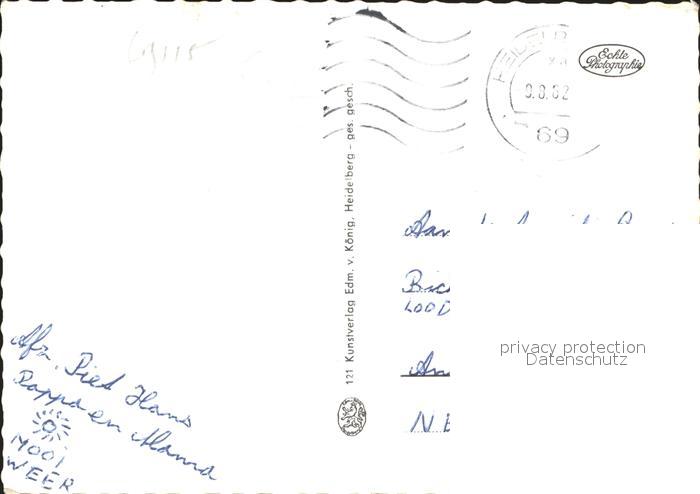 Echte
Photographie
9.8.62
69
121 Kunstverlag Edm. v. König, Heidelberg - ges. gesch.
Aan
LOOD
privacy protection
Datenschutz
Afz. Piet Hans
Pappa en Mama
MOOI
WEER